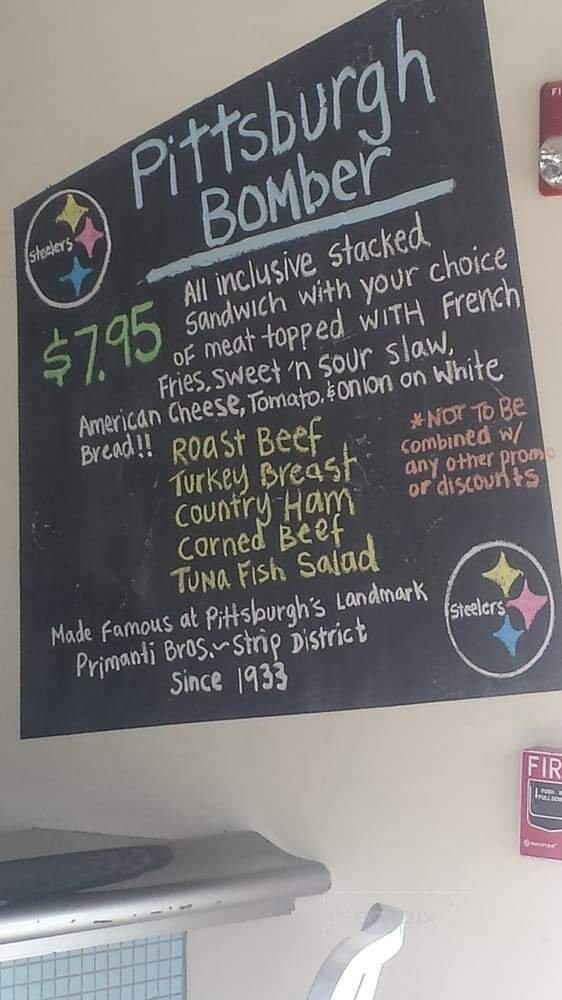 Pittsburgh
BOMber
Steelers
$7.95
All inclusive stacked
sandwich with your choice
of meat topped WITH French
Fries, sweet 'n sour slaw,
American Cheese, Tomato, & onion on White
Bread!!
Roast Beef
Turkey Breast
Country Ham
Corned Beef
Tuna Fish Salad
*NOT To Be
Combined w/
any other promo
or discounts
Made Famous at Pittsburgh's Landmark
Primanti Bros.~Strip District
Since 1933
Steelers
FI
FIR
PUSH
PULL DOW